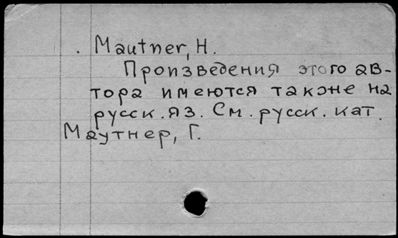 . Mautner, H.
Произведения этого ав-
тора имеются также на
русск. яз. См. русск. кат.
Маутнер, Г.